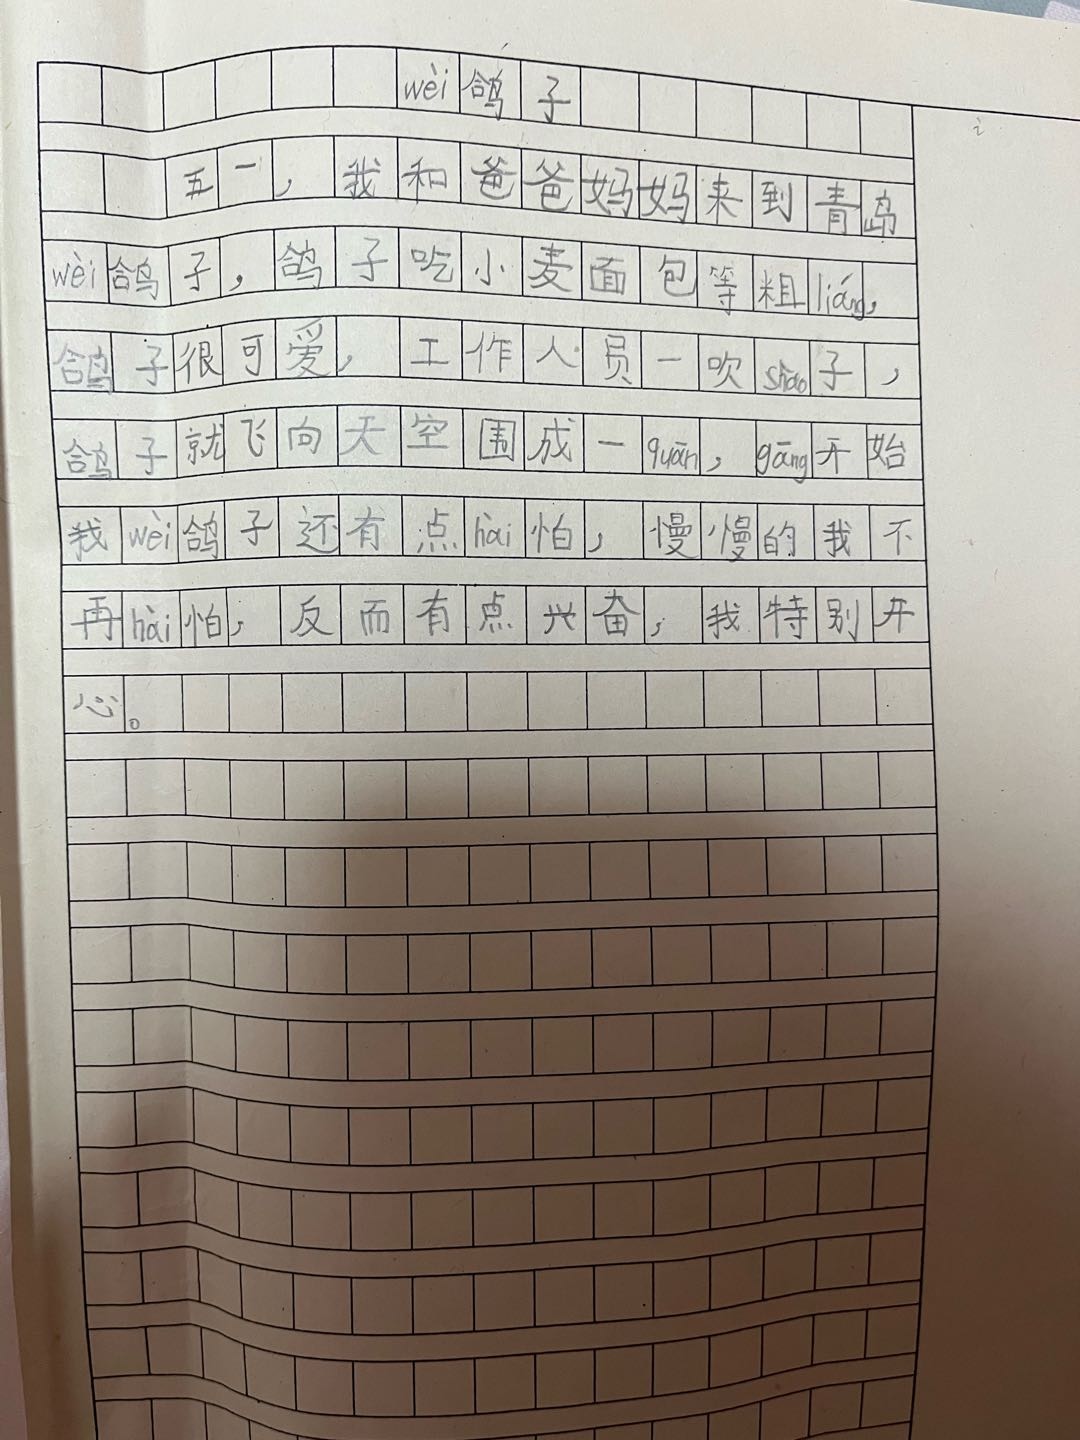 wèi鸽子
五一，我和爸爸妈妈来到青岛
wèi鸽子，鸽子吃小麦面包等粗liáng，
鸽子很可爱，工作人员一吹shào子，
鸽子就飞向天空围成一quān，gāng开始
我wèi鸽子还有点hài怕，慢慢的我不
再hài怕，反而有点兴奋，我特别开
心。